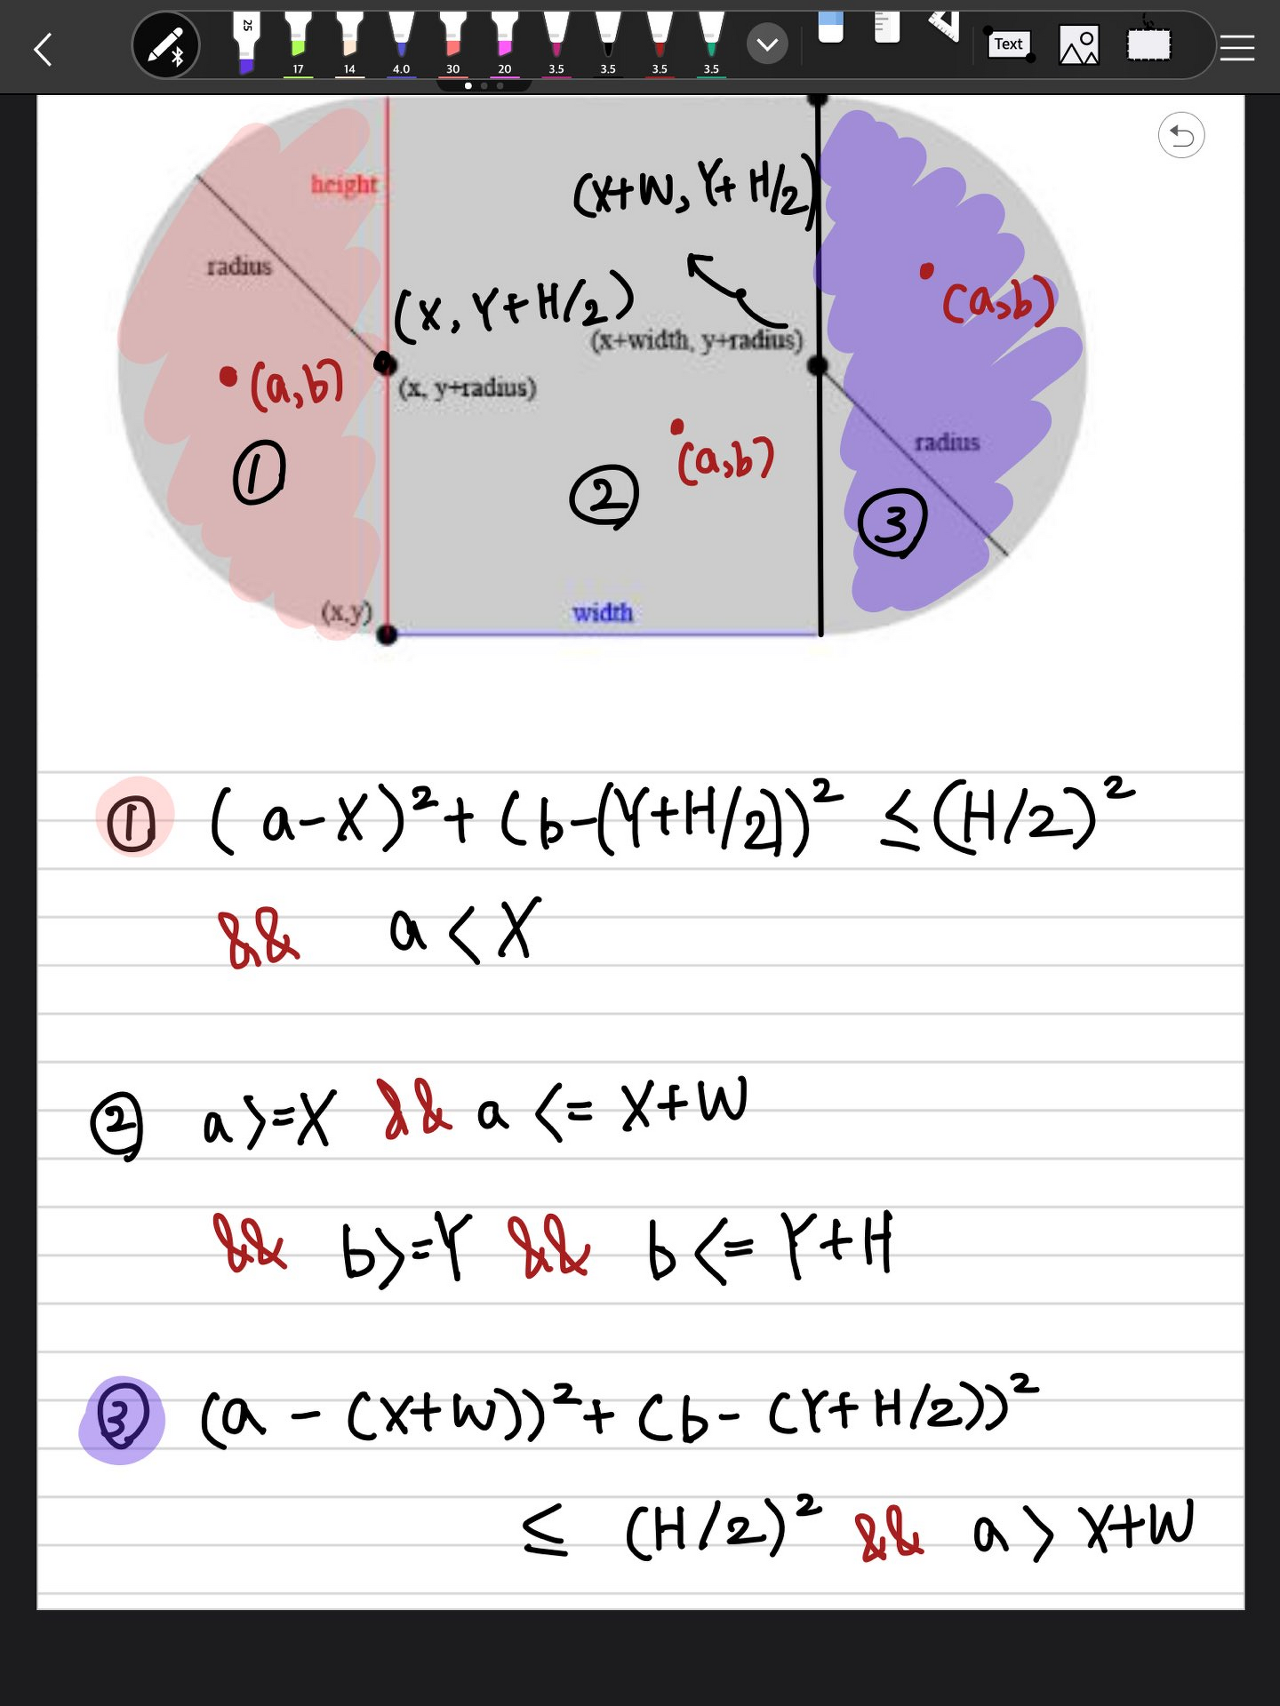 25 17 14 4.0 30 20 3.5 3.5 3.5 3.5 Text
height
(X+W, Y+H/2)
radius
(X, Y+H/2)
(a,b)
(x+width, y+radius)
(a,b)
(x, y+radius)
(a,b)
radius
①
②
③
(x,y)
width
① (a-X)²+(b-(Y+H/2))² ≤(H/2)²
&& a<X
② a>=X && a<=X+W
&& b>=Y && b<=Y+H
③ (a-(X+W))²+(b-(Y+H/2))²
≤ (H/2)² && a>X+W